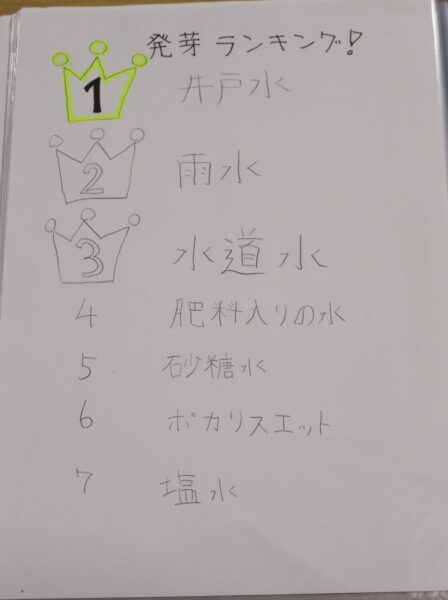 発芽ランキング!
1 井戸水
2 雨水
3 水道水
4 肥料入りの水
5 砂糖水
6 ポカリスエット
7 塩水